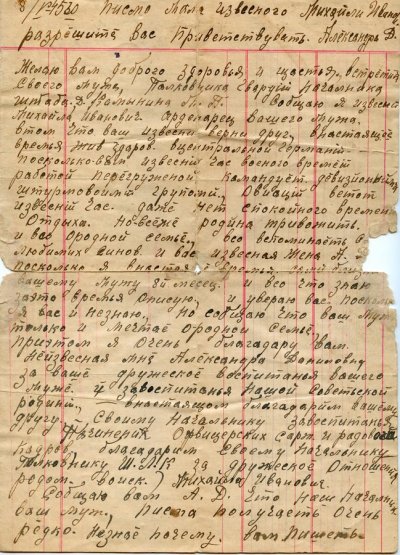 8/V 45 го Писмо Мала извесного Михайли Иванов
разрешите вас Приветствувать. Александра Д.
Желаю вам доброго здоровья, и щастья, встретить
своего мужа, Палковника гвардии Началника
штаба.Д. П. А Сообщаю я извесной
Михайла Иванович Арденарец вашего мужа.
втом что ваш извесни верни друг, внастаящие
времья жив здоров. вцентральной германи
посколько извесни час военого времей
работой перегруженой командует
штурмовоими групоми, Овиаций ветот
извесней час. даже нет спокойного времен
Отдыха. Но-всеже родина тривожить.
и вас ородной семье, все вспоминаеть о
любимих синов. и вас извесная жена А. Д
посколько я внастоя
вашему Мужу 8й месец. и все что знаю
заето времья описую, и увераю вас посколь
я вас и незнаю, Но собщаю что ваш Муж
только и мечтае ородной семье,
притом я Очень благадару вам.
Неизвесная мне Александра Даниловну
за ваше дружеское воспитанья вашего
Мужа. и завоспитанья нашой Советской
родини, внастаящом благадарим вашему
другу. Своему Началнику завоспитанья
Офицерских и радового
Кадров, благадарим Своему Началнику
Палковнику Ш.Л.К за дружеское Отношения
редом. воиск. Михайла Иванович.
Собщаю вам А. Д. что наш Началник
ваш муж, Писма получаеть Очень
редко. Незнае почему. вам Пишеть